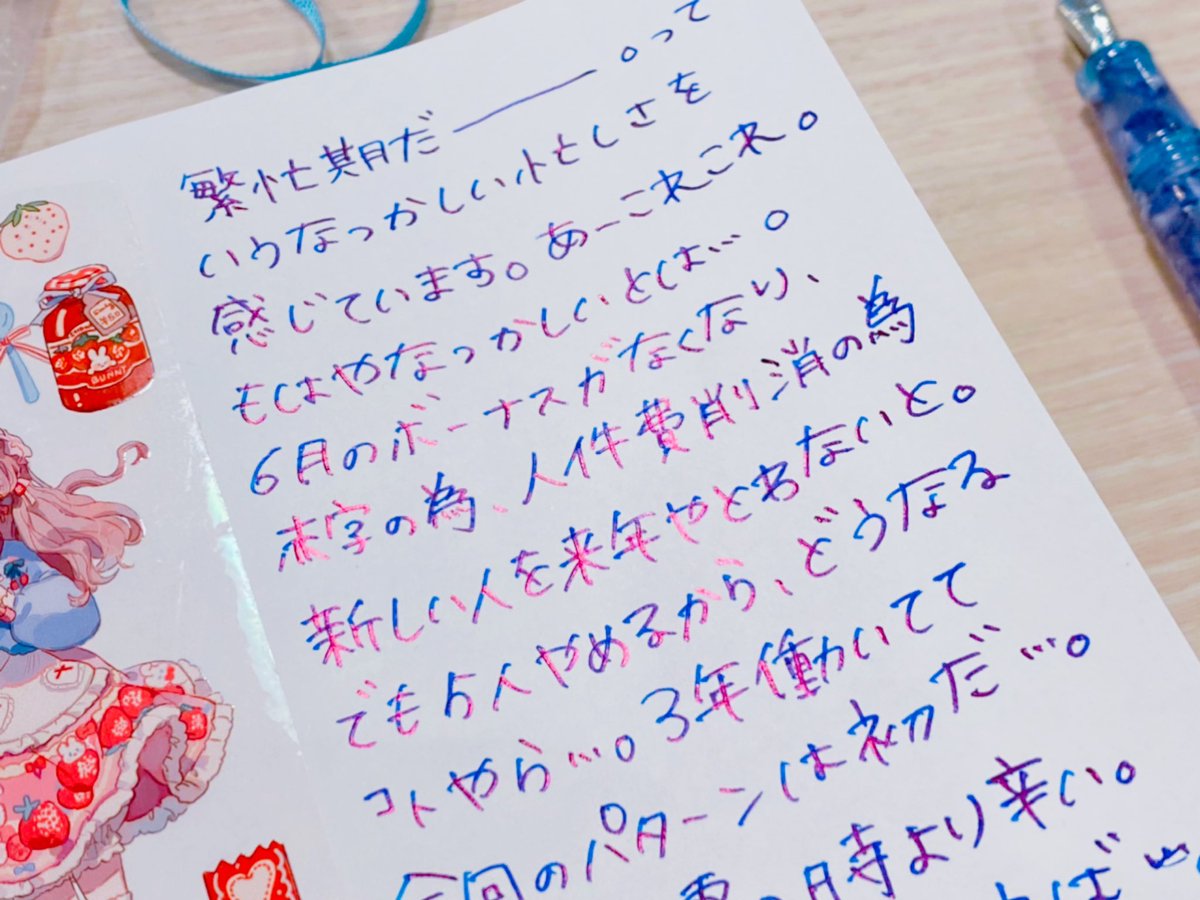 繁忙期だ―――。って
いうなつかしい忙しさを
感じています。あーこれこれ。
もはやなつかしいとは…。
6月のボーナスがなくなり、
赤字の為、人件費削消の為
新しい人を来年やとわないと。
でも5人やめるから、どうなる
コトやら…。3年働いてて
今回のパターンは初だ…。
の時より辛い。
ば
BUNNY